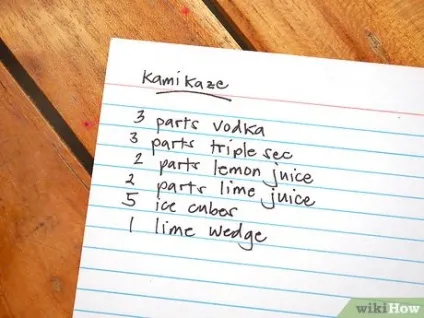 Kamikaze
3 parts vodka
3 parts triple sec
2 parts lemon juice
2 parts lime juice
5 ice cubes
1 lime wedge
wikiHow